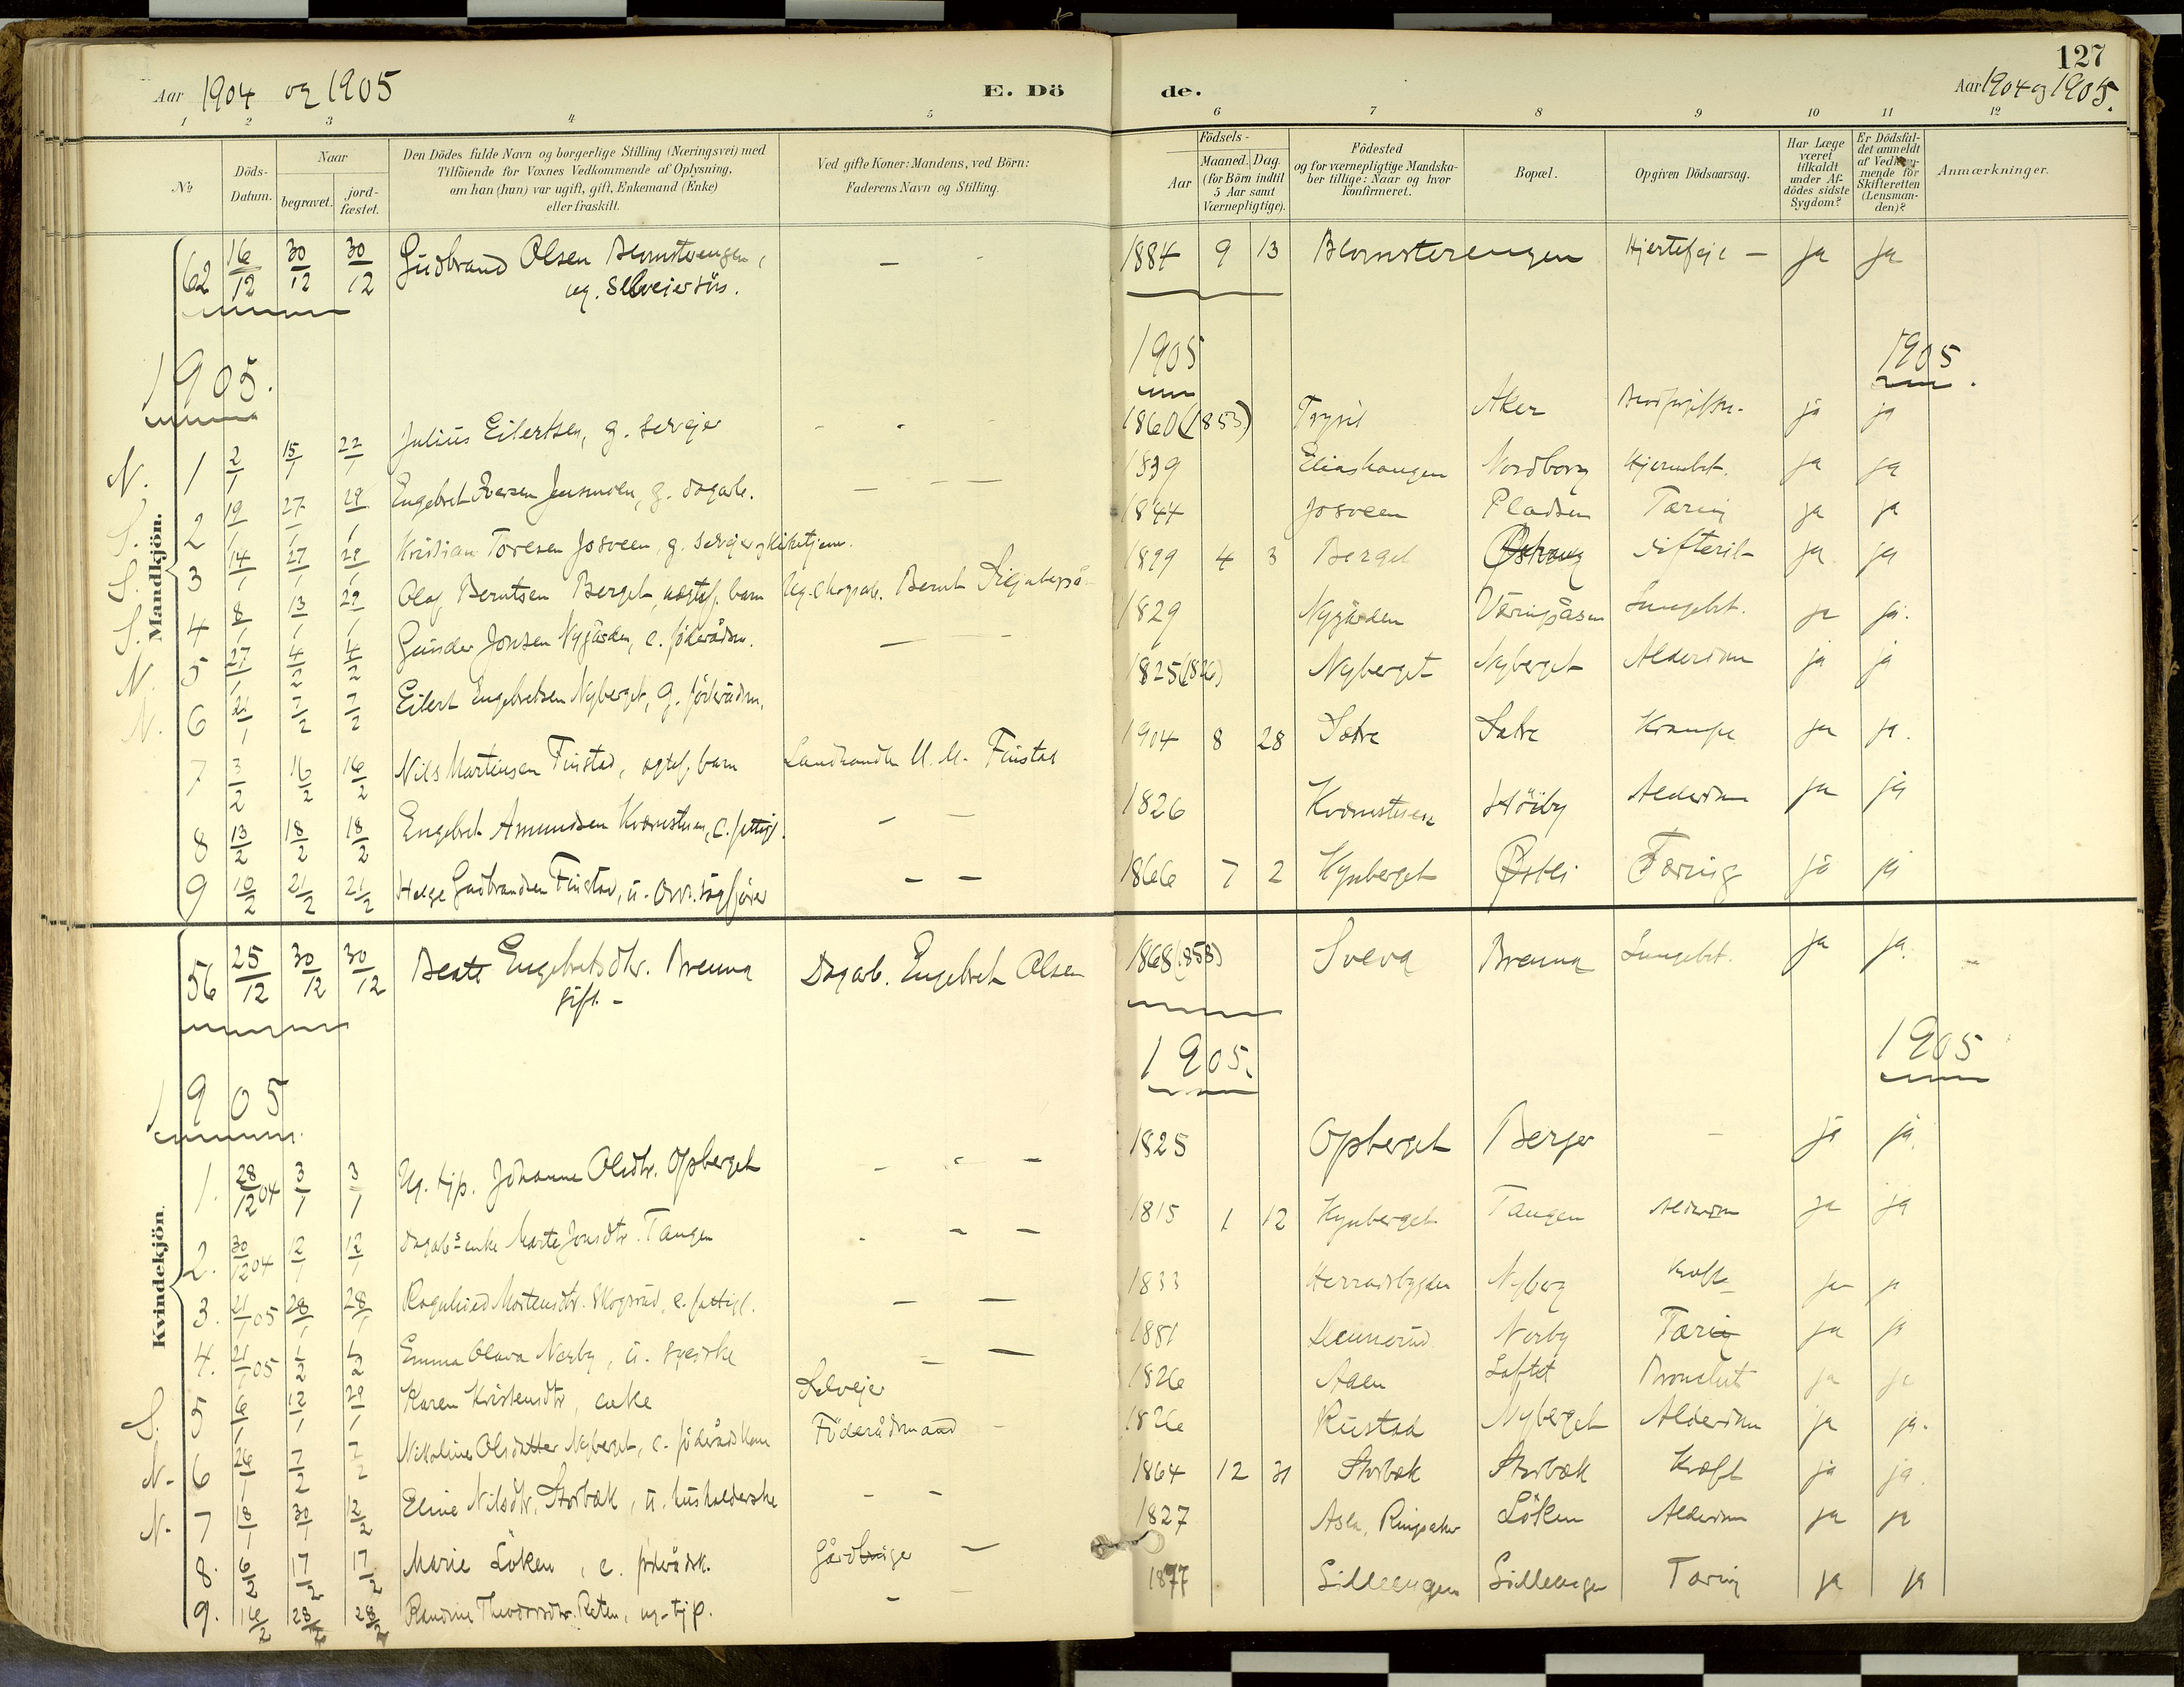 127
Aar 1904 og 1905
E. Dö
de.
Aar 1904 og 1905.
1 2 3 4 5 6 7 8 9 10 11 12
No
Döds-Datum.
Naar
begravet.
jordfæstet.
Den Dödes fulde Navn og borgerlige Stilling (Næringsvei) med
Tilföiende for Voxnes Vedkommende af Oplysning,
om han (hun) var ugift, gift, Enkemand (Enke)
eller fraskilt.
Ved gifte Koner: Mandens, ved Börn:
Faderens Navn og Stilling.
Födsels-
Aar
Maaned. Dag.
(for Börn indtil
5 Aar samt
Værnepligtige).
Födested
og for værnepligtige Mandskaber tillige: Naar og hvor
konfirmeret.
Bopæl.
Opgiven Dödsaarsag.
Har Læge
været
tilkaldt
under Afdödes sidste
Sygdom?
Er Dödsfaldet anmeldt
af Vedkommende for
Skifteretten
(Lensmanden)?
Anmærkninger.
Mandkjön.
62 16/12 30/12 30/12 Gudbrand Olsen Blomsterengen, – 1884 9 13 Blomsterengen Hjertefeil – ja ja
ug. selveiersös.
1905. 1905 1905.
N. 1 2/1 15/1 22/1 Julius Eilertsen, g. selvejer 1860 (1853) Trysil Aker ja ja
S. 2 19/1 27/1 29/1 Engebret Iversen g. dagarb. – – – 1839 Eliashaugen Nordborg ja ja
S. 3 14/1 27/1 29/1 Kristian Toresen Josveen, g. selvejer og 1844 Josveen Pladsen Tæring ja ja
S. 4 8/1 13/1 29/1 Olaf Berntsen Berget, uægtef. barn Ug. Bernt 1899 4 3 Berget Difterit ja ja
N. 5 27/1 4/2 4/2 Gunder Jonsen Nygården, e. föderådsm. – 1829 Nygården Væringsåsen Lungebet. ja ja.
N. 6 21/1 7/2 7/2 Eilert Engebretsen Nyberget, g. föderådsm. 1825 (1826) Nyberget Nyberget Alderdom ja ja
7 3/2 16/2 16/2 Nils Martinsen Finstad, ægtef. barn Landhandler M. M. Finstad 1904 8 28 Sætre Sætre Krampe ja ja.
8 13/2 18/2 18/2 Engebret Amundsen Kværnstuen, e. fattigl. – – 1826 Kværnstuen Höiby Alderdom ja ja
9 10/2 21/2 21/2 Helge Gudbrandsen Finstad, u. – – 1866 7 2 Kynberget Østli Tæring ja ja
Kvindekjön.
56 25/12 30/12 30/12 Beate Engebretsdtr. Brenna Dagarb. Engebret Olsen 1868 (1858) Svea Brenna Lungebet. ja ja.
gift. –
1905 1905. 1905
1. 28/12 04 3/1 3/1 Ug. tjp. Johanne Olsdtr. Opberget – – – 1825 Opberget Berger – ja ja.
2. 30/12 04 12/1 12/1 Dagarbs enke Marte Jonsdtr. Tangen – – – 1815 1 12 Kynberget Tangen Alderdom ja ja
3. 21/1 05 28/1 28/1 Ragnhild Mortensdtr. Skogsrud, e. fattigl. – – 1833 Herradsbygden Nyberg Kræft ja ja
4. 21/1 05 1/2 1/2 Emma Olava Norby, u. syerske – – 1881 Norby Tæring ja ja
S. 5 6/1 12/1 29/1 Karen Kristensdtr, enke Selvejer 1826 Aaen Loftet ja ja
N. 6 26/1 7/2 7/2 Nikoline Olsdatter Nyberget, e. föderådskone Föderådsmand – 1826 Rustad Nyberget Alderdom ja ja.
N. 7 18/1 30/1 12/2 Eline Nilsdtr. Storbæk, u. husholderske – – 1864 12 31 Storbæk Storbæk Kræft ja ja.
8. 6/2 17/2 17/2 Marie Löken, e. föderådsk. Gårdbruger – 1827 Ringsaker Löken Alderdom ja ja
9. 14/2 28/2 28/2 Randine Theodorsdtr. Raten, ug. tjp. – 1877 Lilleengen Lilleengen Tæring ja ja